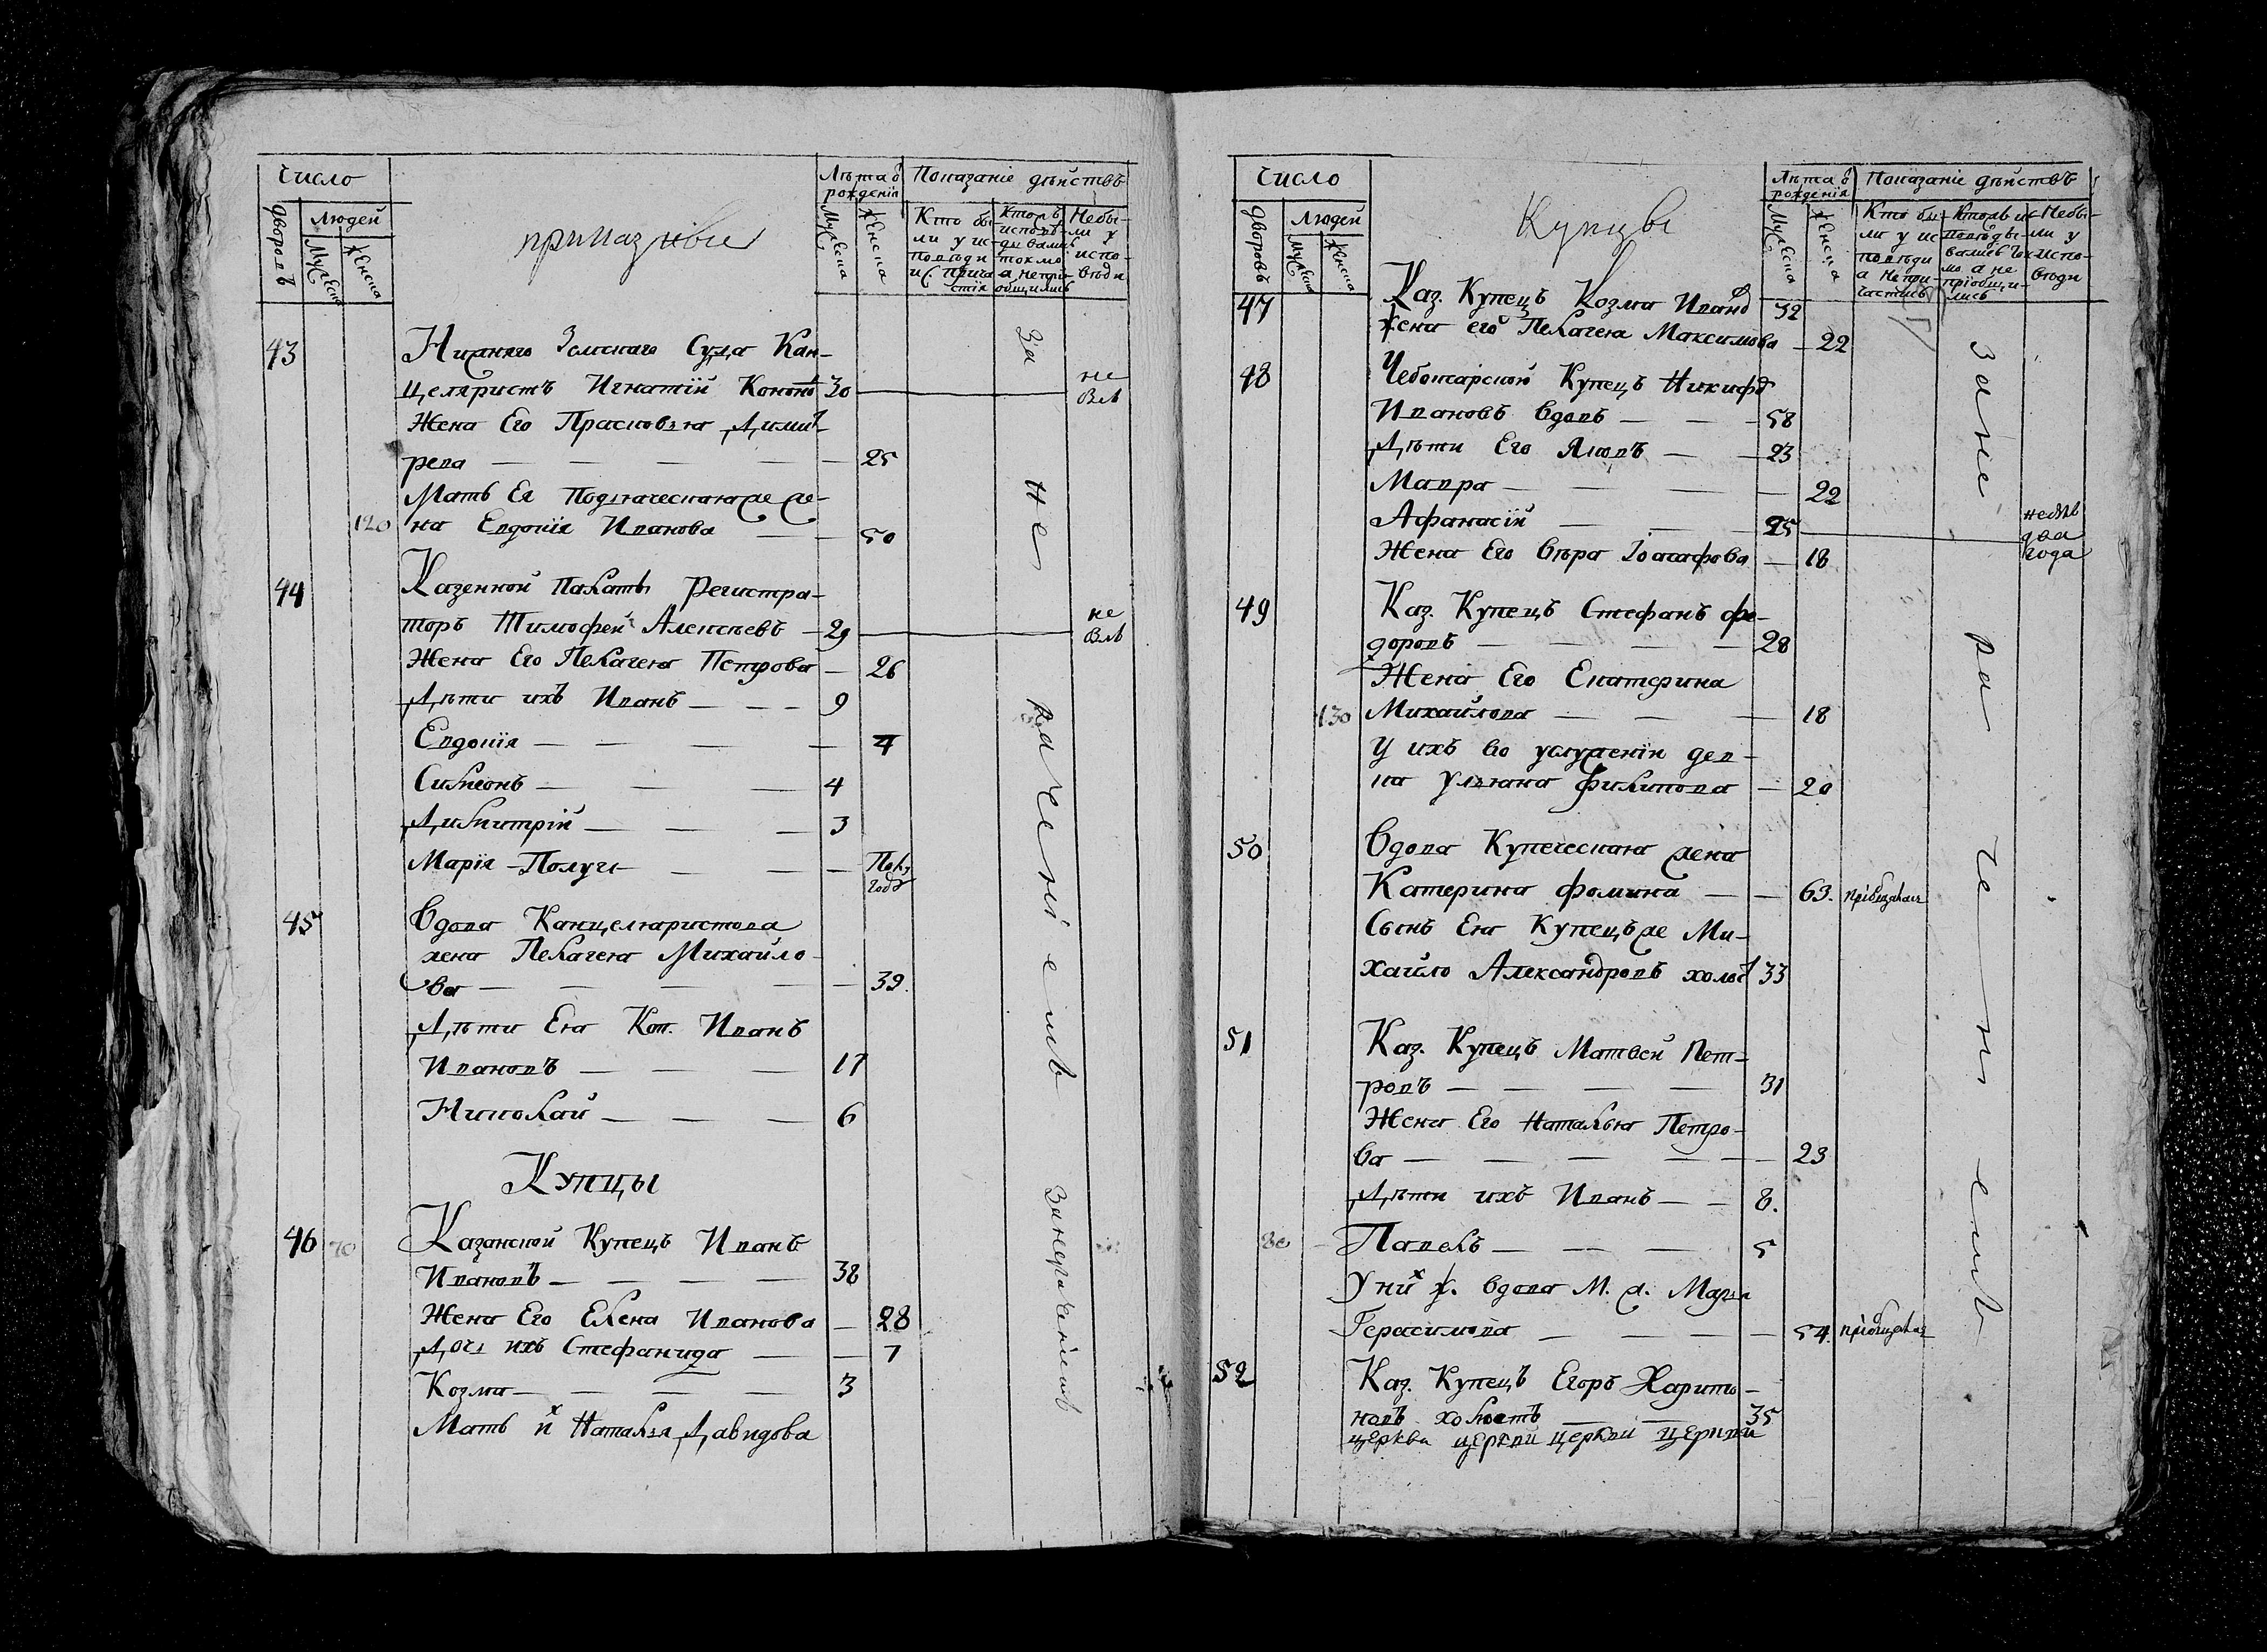 Число
Лѣта ѿ рожденія
Показаніе дѣйствъ
дворовъ
людей
Мужеска
Женска
приказные
Мужеска
Женска
Кто бы-
ли у ис-
повѣди
и с. прича-
стія
Кто исповѣ-
дывались
токмо
а непри-
общились
Небы-
ли у
испо-
вѣди
43
Нижняго Земскаго Суда Кан-
целяристъ Игнатій Конано 30
не
Былъ
Жена Его Прасковья Дими-
рева — — — — 25
Мать Ея Подьяческая же же-
120 на Евдокія Иванова — — 50
44 Казенной Палаты Регистра-
торъ Тимофей Алексѣевъ — 29
не
Былъ
Жена Его Пелагея Петрова — 26
Дѣти ихъ Иванъ — — — 9
Евдокія — — — — 7
Симеонъ — — — 4
Димитрій — — — 3
Марія Полуг — — — Полу
года
45 Вдова Канцеляристова
жена Пелагея Михайло-
ва — — — — — 39
Дѣти Ея Коп. Иванъ
Ивановъ — — — 17
Николай — — — 6
Купцы
46 70 Казанской Купецъ Иванъ
Ивановъ — — — — 38
Жена Его Елена Иванова — 28
Дочь ихъ Стефанида — — 7
Козма — — — — 3
Мать их Наталья Давидова
За не раченіемъ
Занераченіемъ
Число
Лѣта ѿ рожденія
Показаніе дѣйствъ
дворовъ
людей
Мужеска
Женска
Купцы
Мужеска
Женска
Кто бы-
ли у ис-
повѣди
а непри-
частись
Кто ис-
повѣды-
вались ток-
мо а не
пріобщи-
лись
Небы-
ли у
испо-
вѣди
47 Каз. Купецъ Козма Ивано 52
жена его Пелагея Максимова — 22
48 Чебоксарской Купецъ Никифо
Ивановъ вдовъ — — — 58
Дѣти Его Яковъ — — 23
Мавра — — — — 22
Афанасій — — — 25
небылъ
два
года
Жена Его Вѣра Іоасафова — 18
49 Каз. Купецъ Стефанъ фе-
доровъ — — — — 28
Жена Его Екатерина
130 Михайлова — — — 18
У ихъ во услуженіи дев-
ка Ульяна Филипова — 20
50 Вдова Купеческая жена
Катерина фомина — — 63. пріобщалась
Сынъ Ея Купецъ же Ми-
хайло Александровъ холос 33
51 Каз. Купецъ Матвей Пет-
ровъ — — — — 31
Жена Его Наталья Петро-
ва — — — — — 23
Дѣти ихъ Иванъ — — 8.
Павелъ — — — 5
У них ж. вдова М. ж. Марья
Герасимова — — — — 54 пріобщалась
52 Каз. Купецъ Егоръ Харито-
новъ холостъ — — 35
церкви церкви церкви церкви
Зане ра че ні емъ